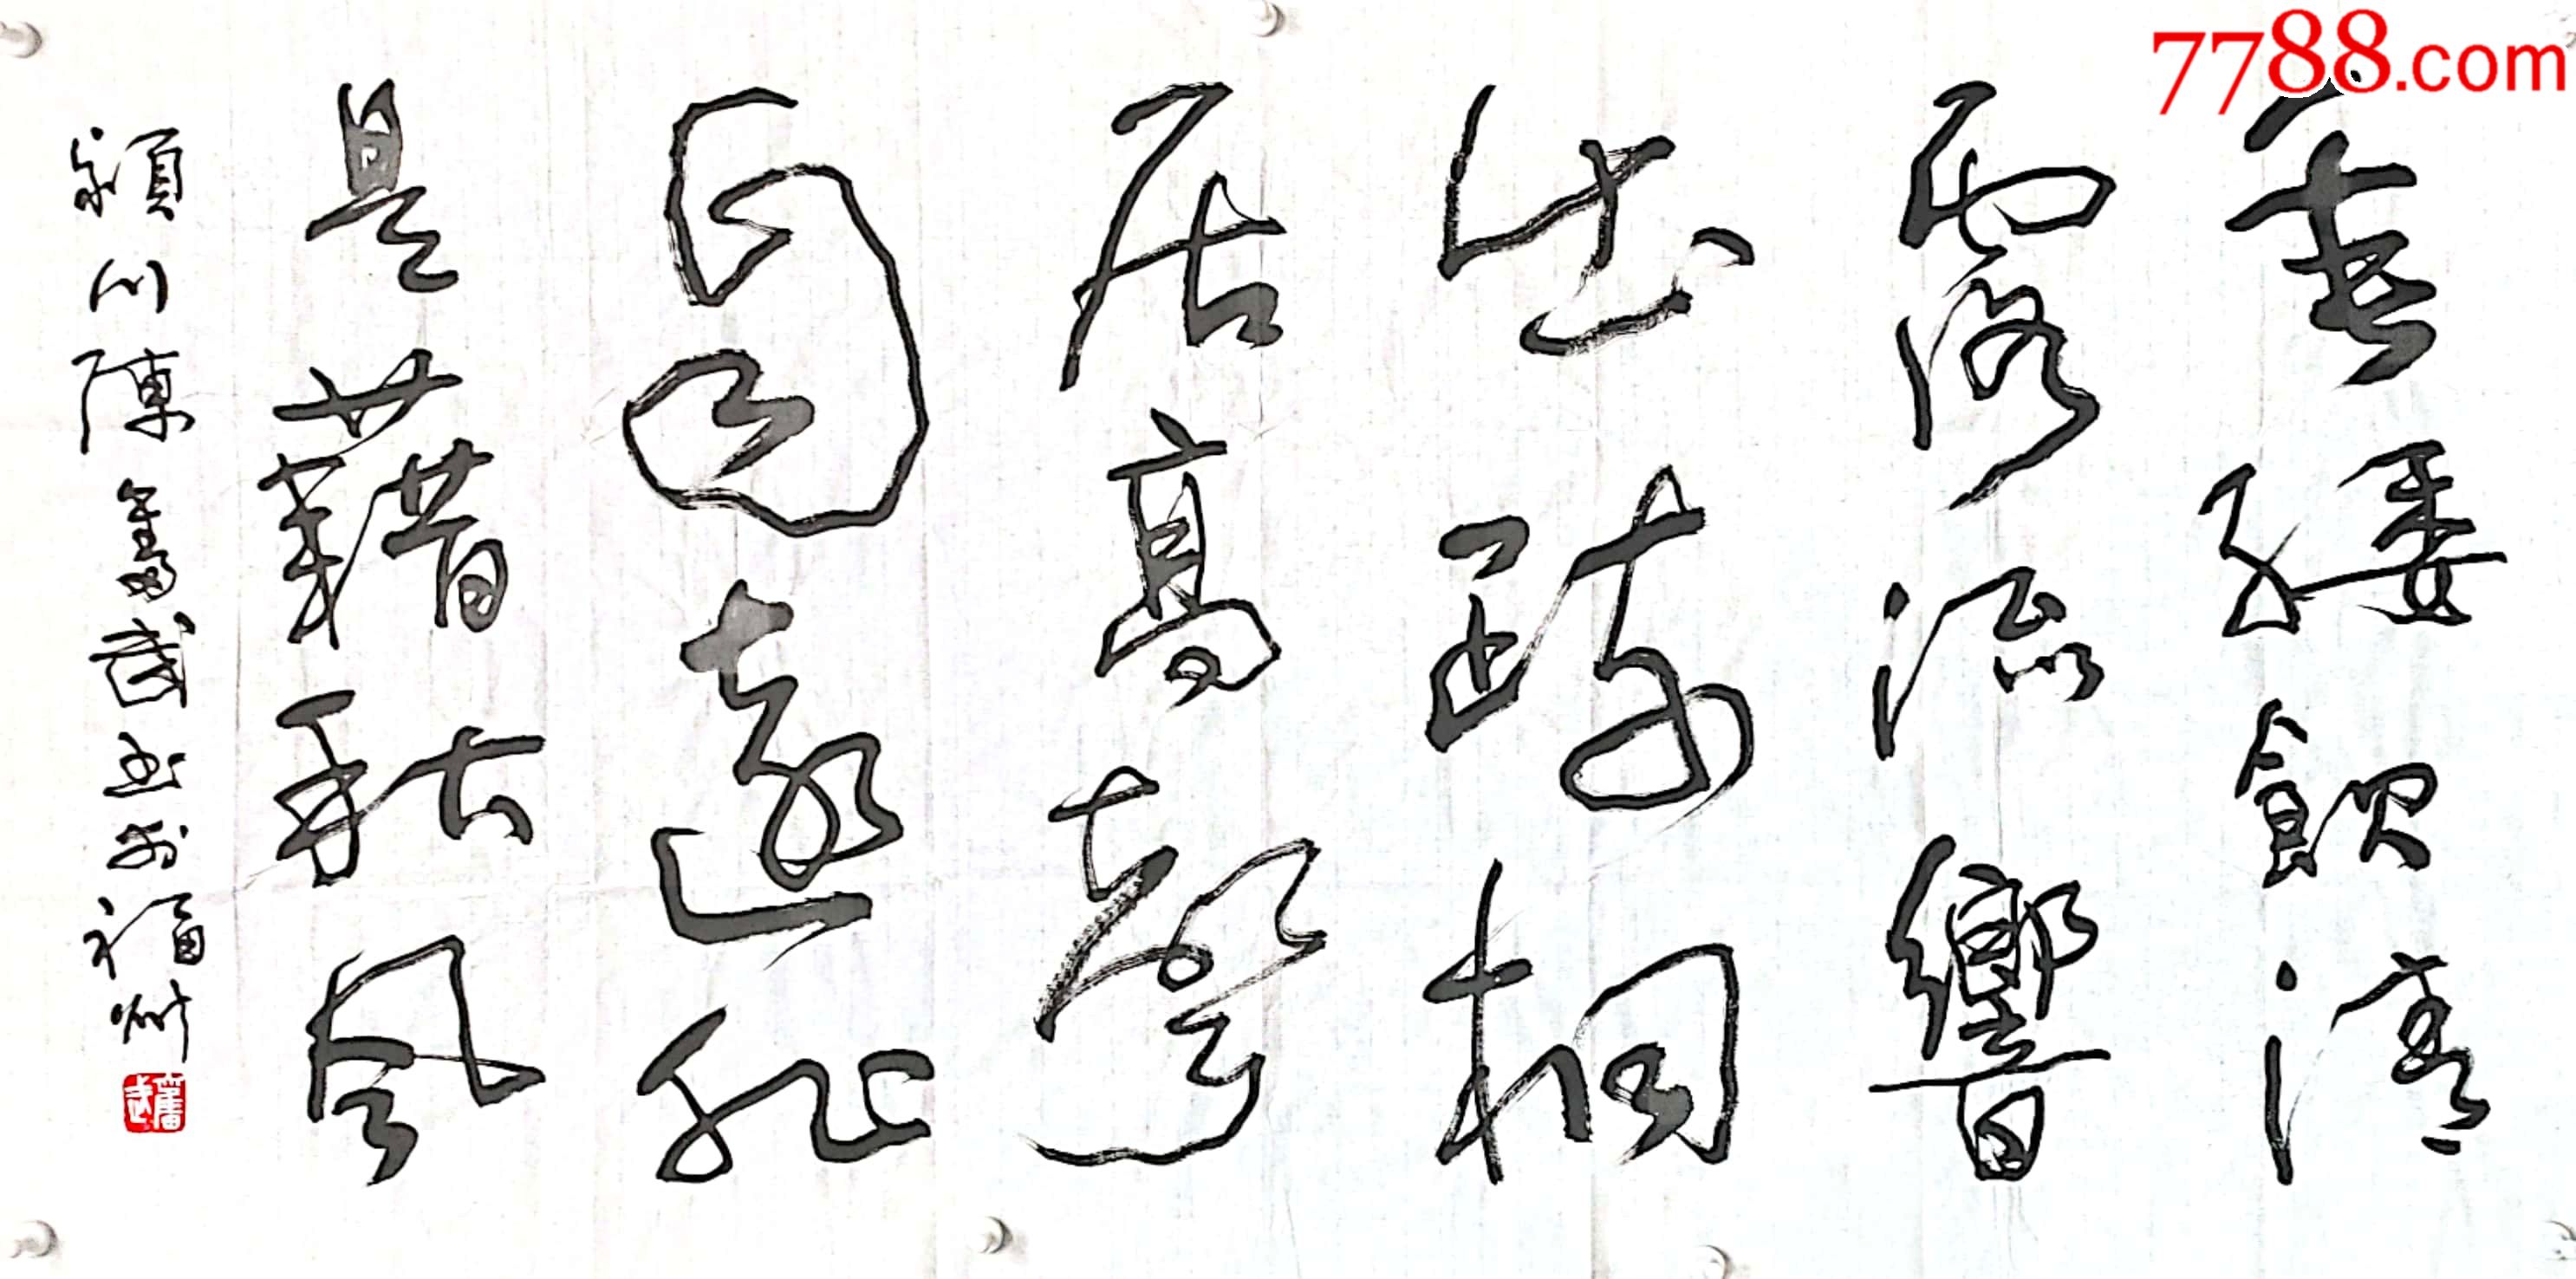 7788.com
垂緌飲清
露流響
出疏桐
居高聲
自遠非
是藉秋風
潁川陳奮武书於福州